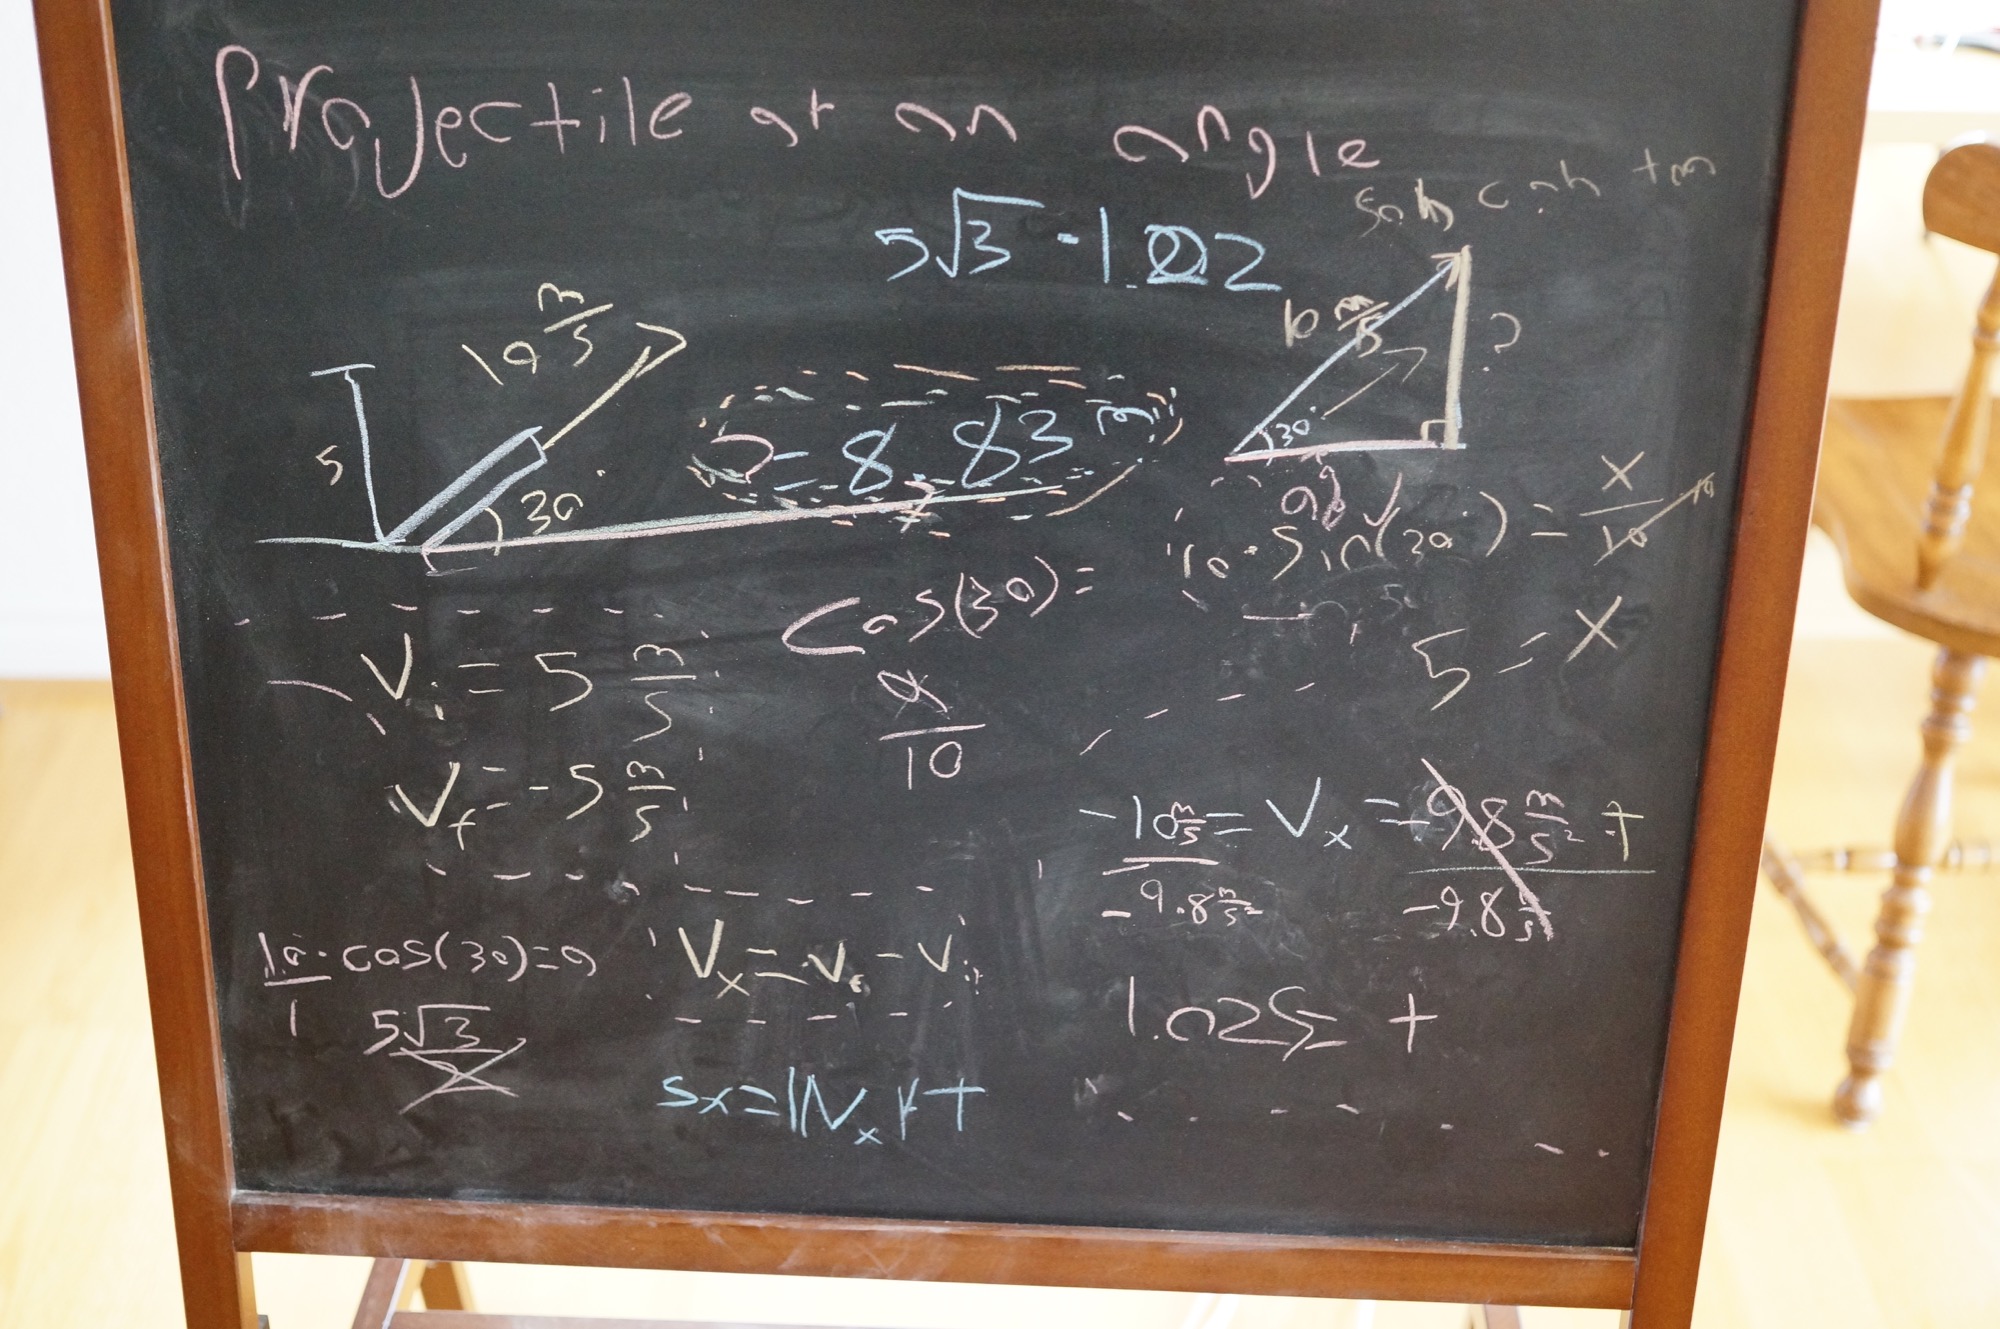 Projectile at an angle
soh cah toa
5√3 · 1.02
10 m/s
5
30°
= 8.83 m
10 m/s
?
30°
adj
10 · sin(30°) = x/10
5 = x
cos(30) =
a/10
Vi = 5 m/s
Vf = -5 m/s
-10 m/s = Vx = -9.8 m/s² t
-9.8 m/s²
-9.8
10/1 · cos(30) = a
5√3
Vx = Vf - Vi
1.02s = t